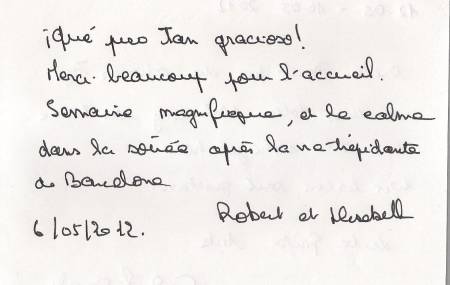 ¡Qué peso Tan gracioso!
Merci beaucoup pour l'accueil.
Semaine magnifique, et le calme
dans la soirée après la vie trépidante
de Barcelone
Robert et
6/05/2012.